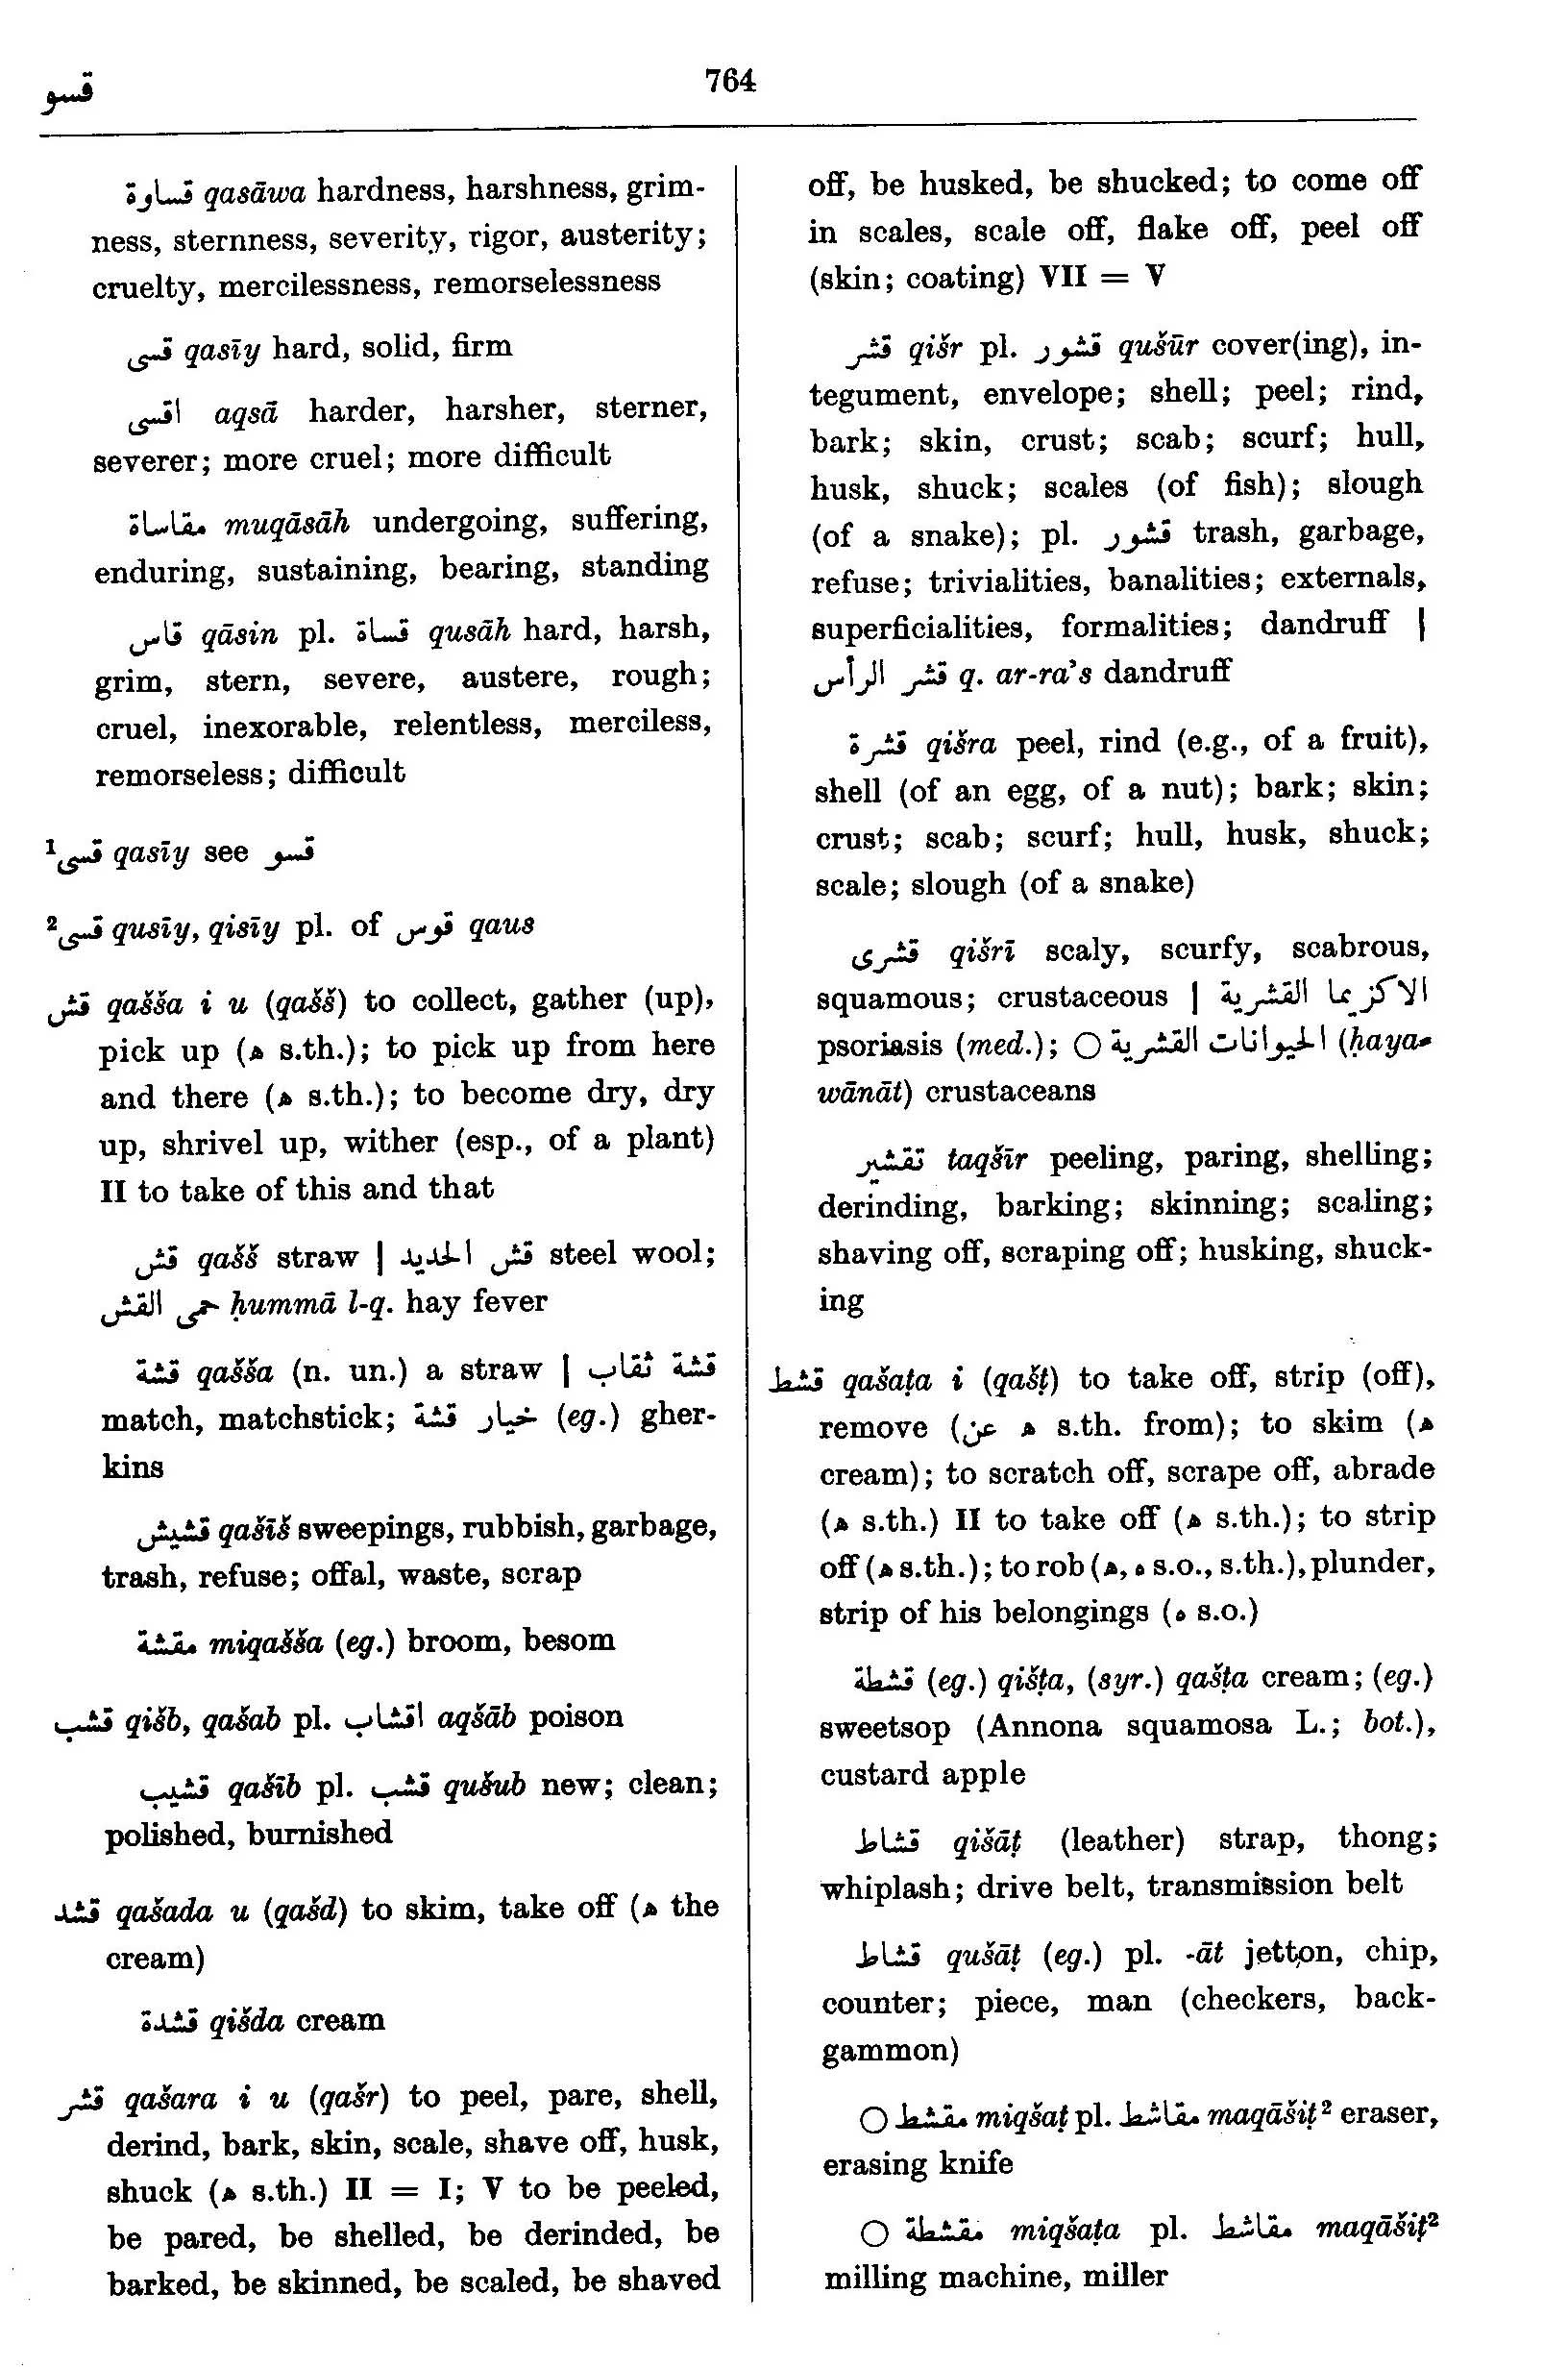 قسو
764
قساوة qasāwa hardness, harshness, grim-
ness, sternness, severity, rigor, austerity;
cruelty, mercilessness, remorselessness
قسى qasīy hard, solid, firm
اقسى aqsā harder, harsher, sterner,
severer; more cruel; more difficult
مقاساة muqāsāh undergoing, suffering,
enduring, sustaining, bearing, standing
قاس qāsin pl. قساة qusāh hard, harsh,
grim, stern, severe, austere, rough;
cruel, inexorable, relentless, merciless,
remorseless; difficult
¹قسى qasīy see قسو
²قسى qusīy, qisīy pl. of قوس qaus
قش qašša i u (qašš) to collect, gather (up),
pick up (ه s.th.); to pick up from here
and there (ه s.th.); to become dry, dry
up, shrivel up, wither (esp., of a plant)
II to take of this and that
قش qašš straw | قش الحديد steel wool;
حمى القش ḥummā l-q. hay fever
قشة qašša (n. un.) a straw | قشة ثقاب
match, matchstick; خيار قشة (eg.) gher-
kins
قشيش qašīš sweepings, rubbish, garbage,
trash, refuse; offal, waste, scrap
مقشة miqašša (eg.) broom, besom
قشب qišb, qašab pl. اقشاب aqšāb poison
قشيب qašīb pl. قشب qušub new; clean;
polished, burnished
قشد qašada u (qašd) to skim, take off (ه the
cream)
قشدة qišda cream
قشر qašara i u (qašr) to peel, pare, shell,
derind, bark, skin, scale, shave off, husk,
shuck (ه s.th.) II = I; V to be peeled,
be pared, be shelled, be derinded, be
barked, be skinned, be scaled, be shaved
off, be husked, be shucked; to come off
in scales, scale off, flake off, peel off
(skin; coating) VII = V
قشر qišr pl. قشور qušūr cover(ing), in-
tegument, envelope; shell; peel; rind,
bark; skin, crust; scab; scurf; hull,
husk, shuck; scales (of fish); slough
(of a snake); pl. قشور trash, garbage,
refuse; trivialities, banalities; externals,
superficialities, formalities; dandruff |
قشر الرأس q. ar-ra's dandruff
قشرة qišra peel, rind (e.g., of a fruit),
shell (of an egg, of a nut); bark; skin;
crust; scab; scurf; hull, husk, shuck;
scale; slough (of a snake)
قشرى qišrī scaly, scurfy, scabrous,
squamous; crustaceous | الاكزيما القشرية
psoriasis (med.); ○ الحيوانات القشرية (ḥaya-
wānāt) crustaceans
تقشير taqšīr peeling, paring, shelling;
derinding, barking; skinning; scaling;
shaving off, scraping off; husking, shuck-
ing
قشط qašaṭa i (qašṭ) to take off, strip (off),
remove (ه عن s.th. from); to skim (ه
cream); to scratch off, scrape off, abrade
(ه s.th.) II to take off (ه s.th.); to strip
off (ه s.th.); to rob (ه, ه s.o., s.th.), plunder,
strip of his belongings (ه s.o.)
قشطة (eg.) qišṭa, (syr.) qašṭa cream; (eg.)
sweetsop (Annona squamosa L.; bot.),
custard apple
قشاط qišāṭ (leather) strap, thong;
whiplash; drive belt, transmission belt
قشاط qušāṭ (eg.) pl. -āt jetton, chip,
counter; piece, man (checkers, back-
gammon)
○ مقشط miqšaṭ pl. مقاشط maqāšiṭ² eraser,
erasing knife
○ مقشطة miqšaṭa pl. مقاشط maqāšiṭ²
milling machine, miller